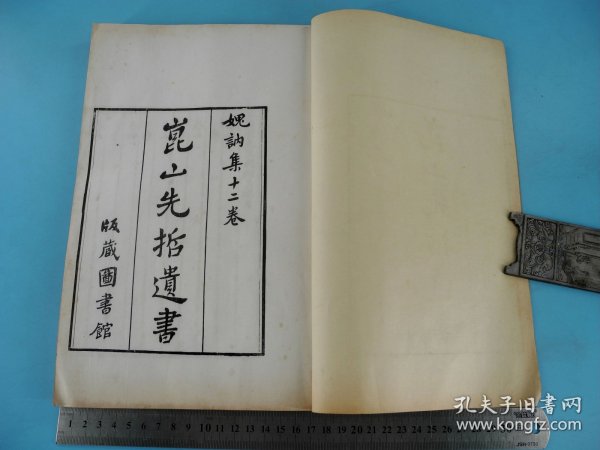 媿訥集十二卷
崑山先哲遺書
版藏圖書館
孔夫子旧书网
www.kongfz.com
1 2 3 4 5 6 7 8 9 10 11 12 13 14 15 16 17 18 19 20 21 22 23 24 25 26